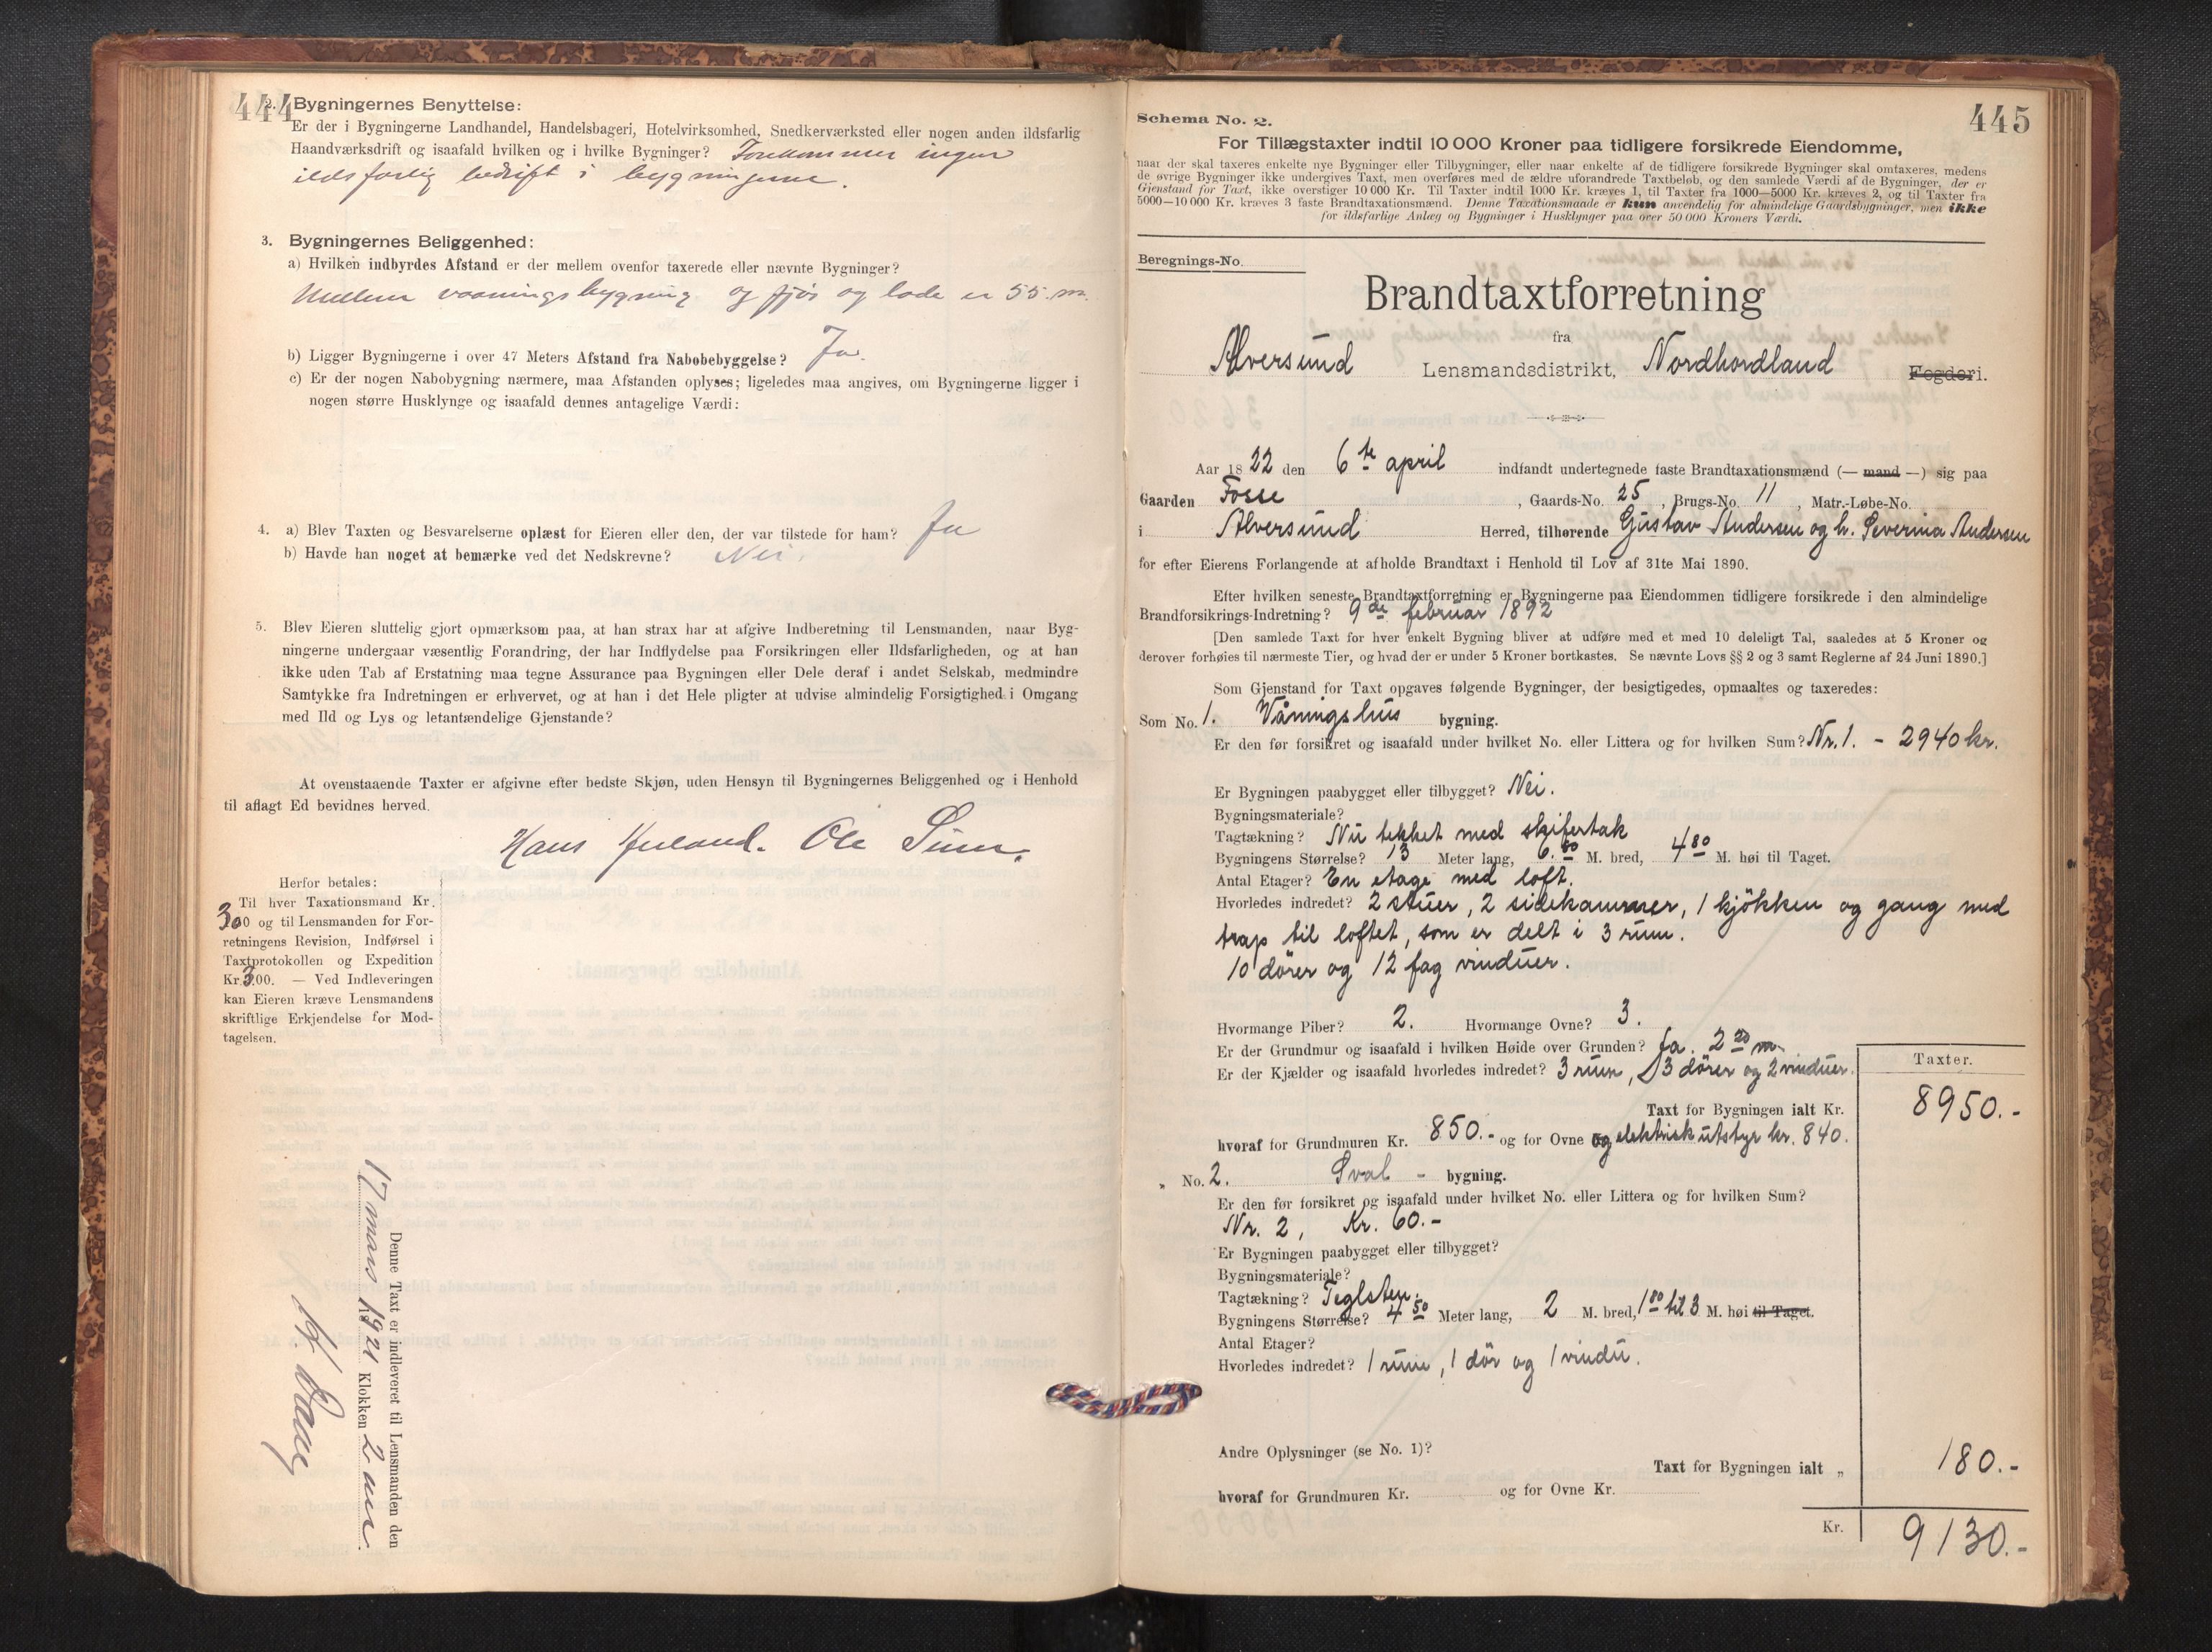 444
2. Bygningernes Benyttelse:
Er der i Bygningerne Landhandel, Handelsbageri, Hotelvirksomhed, Snedkerværksted eller nogen anden ildsfarlig
Haandværksdrift og isaafald hvilken og i hvilke Bygninger? Forekommer ingen
ildsfarlig bedrift i bygningerne.
3. Bygningernes Beliggenhed:
a) Hvilken indbyrdes Afstand er der mellem ovenfor taxerede eller nævnte Bygninger?
Mellem vaaningsbygning og fjös og lade er 55 m.
b) Ligger Bygningerne i over 47 Meters Afstand fra Nabobebyggelse? Ja.
c) Er der nogen Nabobygning nærmere, maa Afstanden oplyses; ligeledes maa angives, om Bygningerne ligger i
nogen større Husklynge og isaafald dennes antagelige Værdi:
4. a) Blev Taxten og Besvarelserne oplæst for Eieren eller den, der var tilstede for ham? Ja
b) Havde han noget at bemærke ved det Nedskrevne? Nei.
5. Blev Eieren sluttelig gjort opmærksom paa, at han strax har at afgive Indberetning til Lensmanden, naar Byg-
ningerne undergaar væsentlig Forandring, der har Indflydelse paa Forsikringen eller Ildsfarligheden, og at han
ikke uden Tab af Erstatning maa tegne Assurance paa Bygningen eller Dele deraf i andet Selskab, medmindre
Samtykke fra Indretningen er erhvervet, og at han i det Hele pligter at udvise almindelig Forsigtighed i Omgang
med Ild og Lys og letantændelige Gjenstande?
At ovenstaaende Taxter er afgivne efter bedste Skjøn, uden Hensyn til Bygningernes Beliggenhed og i Henhold
til aflagt Ed bevidnes herved.
Hans Ole
Herfor betales:
Til hver Taxationsmand Kr.
3.00 og til Lensmanden for For-
retningens Revision, Indførsel i
Taxtprotokollen og Expedition
Kr. 3.00. — Ved Indleveringen
kan Eieren kræve Lensmandens
skriftlige Erkjendelse for Mod-
tagelsen.
Denne Taxt er indleveret til Lensmanden den
17 mars 1921 Klokken 2 em.
445
Schema No. 2.
For Tillægstaxter indtil 10 000 Kroner paa tidligere forsikrede Eiendomme,
naar der skal taxeres enkelte nye Bygninger eller Tilbygninger, eller naar enkelte af de tidligere forsikrede Bygninger skal omtaxeres, medens
de øvrige Bygninger ikke undergives Taxt, men overføres med de ældre uforandrede Taxtbeløb, og den samlede Værdi af de Bygninger, der er
Gjenstand for Taxt, ikke overstiger 10 000 Kr. Til Taxter indtil 1000 Kr. kræves 1, til Taxter fra 1000—5000 Kr. kræves 2, og til Taxter fra
5000—10 000 Kr. kræves 3 faste Brandtaxationsmænd. Denne Taxationsmaade er kun anvendelig for almindelige Gaardsbygninger, men ikke
for ildsfarlige Anlæg og Bygninger i Husklynger paa over 50 000 Kroners Værdi.
Beregnings-No.
Brandtaxtforretning
fra
Alversund Lensmandsdistrikt, Nordhordland Fogderi.
Aar 1822 den 6te april indfandt undertegnede faste Brandtaxationsmænd (— mand —) sig paa
Gaarden Fosse, Gaards-No. 25, Brugs-No. 11, Matr.-Løbe-No.
i Alversund Herred, tilhørende Gustav Andersen og h. Severina Andersen
for efter Eierens Forlangende at afholde Brandtaxt i Henhold til Lov af 31te Mai 1890.
Efter hvilken seneste Brandtaxtforretning er Bygningerne paa Eiendommen tidligere forsikrede i den almindelige
Brandforsikrings-Indretning? 9de februar 1892
[Den samlede Taxt for hver enkelt Bygning bliver at udføre med et med 10 deleligt Tal, saaledes at 5 Kroner og
derover forhøies til nærmeste Tier, og hvad der er under 5 Kroner bortkastes. Se nævnte Lovs §§ 2 og 3 samt Reglerne af 24 Juni 1890.]
Som Gjenstand for Taxt opgaves følgende Bygninger, der besigtigedes, opmaaltes og taxeredes:
Som No. 1. Våningshus bygning.
Er den før forsikret og isaafald under hvilket No. eller Littera og for hvilken Sum? Nr. 1. - 2940 kr.
Er Bygningen paabygget eller tilbygget? Nei.
Bygningsmateriale?
Tagtækning? Nu tekket med skifertak
Bygningens Størrelse? 13 Meter lang, 6.80 M. bred, 4 80 M. høi til Taget.
Antal Etager? En etage med loft.
Hvorledes indredet? 2 stuer, 2 sidekammer, 1 kjökken og gang med
trap til loftet, som er delt i 3 rum.
10 dører og 12 fag vinduer.
Hvormange Piber? 2. Hvormange Ovne? 3.
Er der Grundmur og isaafald i hvilken Høide over Grunden? Ja. 2 20 m.
Er der Kjælder og isaafald hvorledes indredet? 3 rum, 3 dörer og 2 vinduer.
Taxter.
Taxt for Bygningen ialt Kr. 8950.-
hvoraf for Grundmuren Kr. 850.- og for Ovne og elektrisk utstyr kr. 840.
„ No. 2. Sval - bygning.
Er den før forsikret og isaafald under hvilket No. eller Littera og for hvilken Sum?
Nr. 2, Kr. 60.-
Er Bygningen paabygget eller tilbygget?
Bygningsmateriale?
Tagtækning? Teglsten.
Bygningens Størrelse? 4 50 Meter lang, 2 M. bred, 1 80 til 3 M. høi til Taget.
Antal Etager?
Hvorledes indredet? 1 rum, 1 dör og 1 vindu.
Andre Oplysninger (se No. 1)?
Taxt for Bygningen ialt „ 180.-
hvoraf for Grundmuren Kr. og for Ovne Kr.
Kr. 9130.-